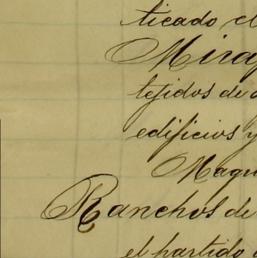 ticado el
Miraf
tejidos de
edificios y
Maqu
Ranchos de
el partido